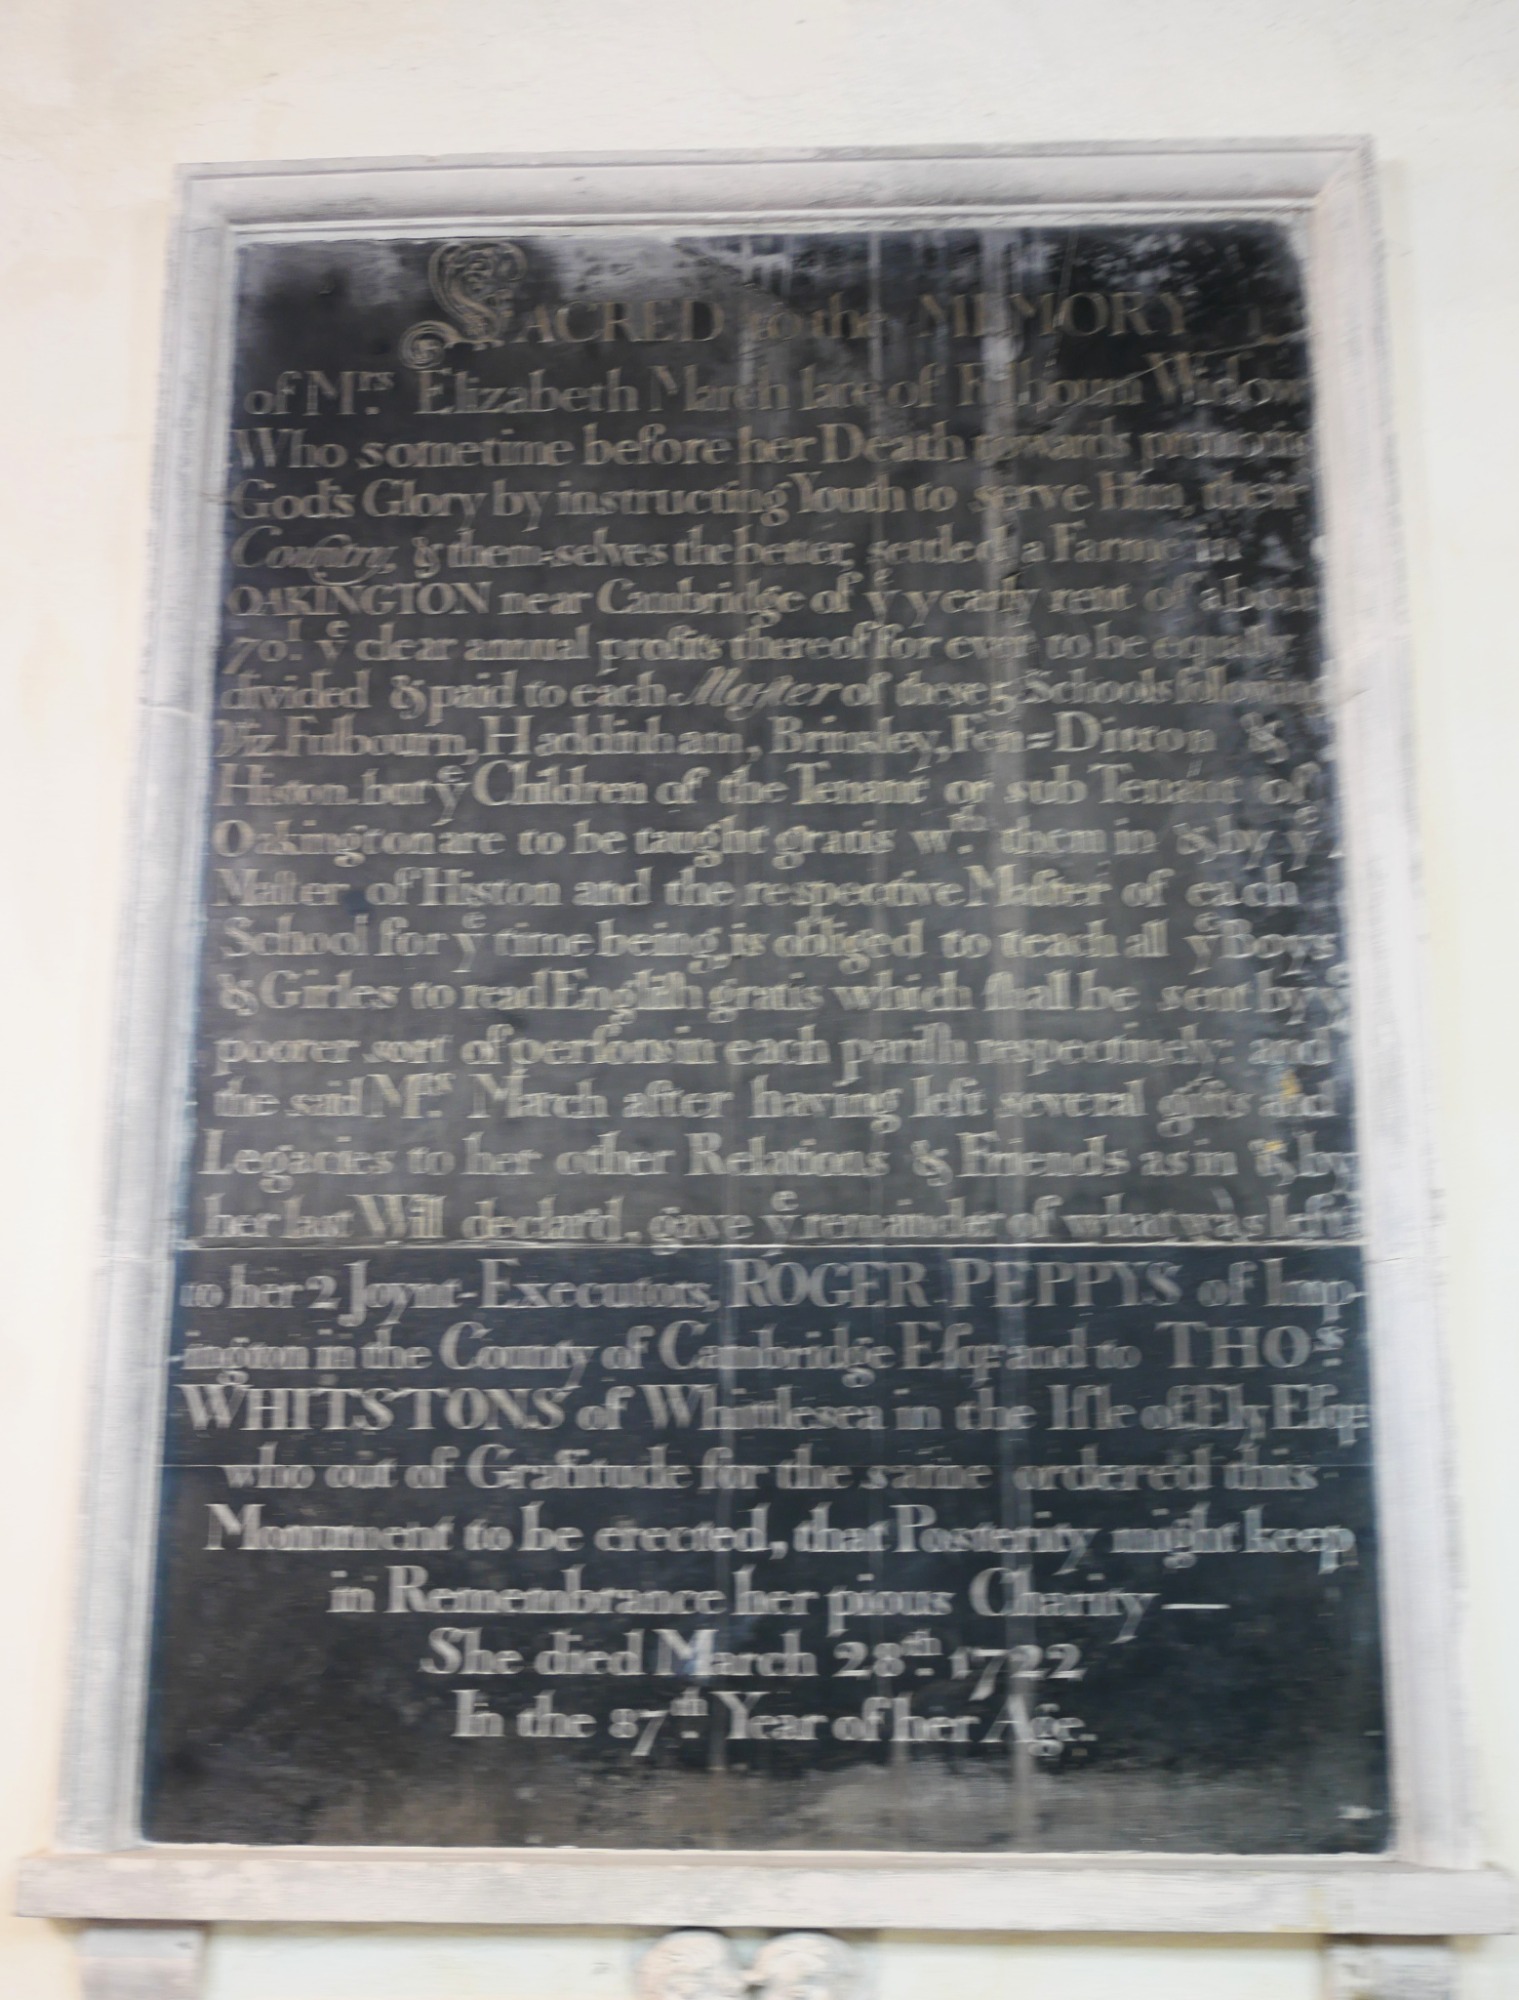 SACRED to the MEMORY
of Mrs. Elizabeth March late of Fulbourn Widow
Who sometime before her Death towards promoting
God's Glory by instructing Youth to serve Him, their
Country, & them-selves the better, settled a Farme in
OAKINGTON near Cambridge of ye yearly rent of about
70l. ye clear annual profits thereof for ever to be equally
divided & paid to each Master of these 5 Schools following
Viz. Fulbourn, Haddinham, Brinsley, Fen=Ditton &
Histon. but ye Children of the Tenant or sub Tenant of
Oakington are to be taught gratis wth. them in & by ye
Master of Histon and the respective Master of each
School for ye time being, is obliged to teach all ye Boys
& Girles to read English gratis which shall be sent by ye
poorer sort of persons in each parish respectively: and
the said Mrs. March after having left several gifts and
Legacies to her other Relations & Friends as in & by
her last Will declar'd, gave ye remainder of what was left
to her 2 Joynt-Executors, ROGER PEPPYS of Imp-
-ington in the County of Cambridge Esq: and to THOs.
WHITSTONS of Whittlesea in the Isle of Ely Esq:
who out of Gratitude for the same ordered this
Monument to be erected, that Posterity might keep
in Remembrance her pious Charity —
She died March 28th. 1722
In the 87th. Year of her Age.